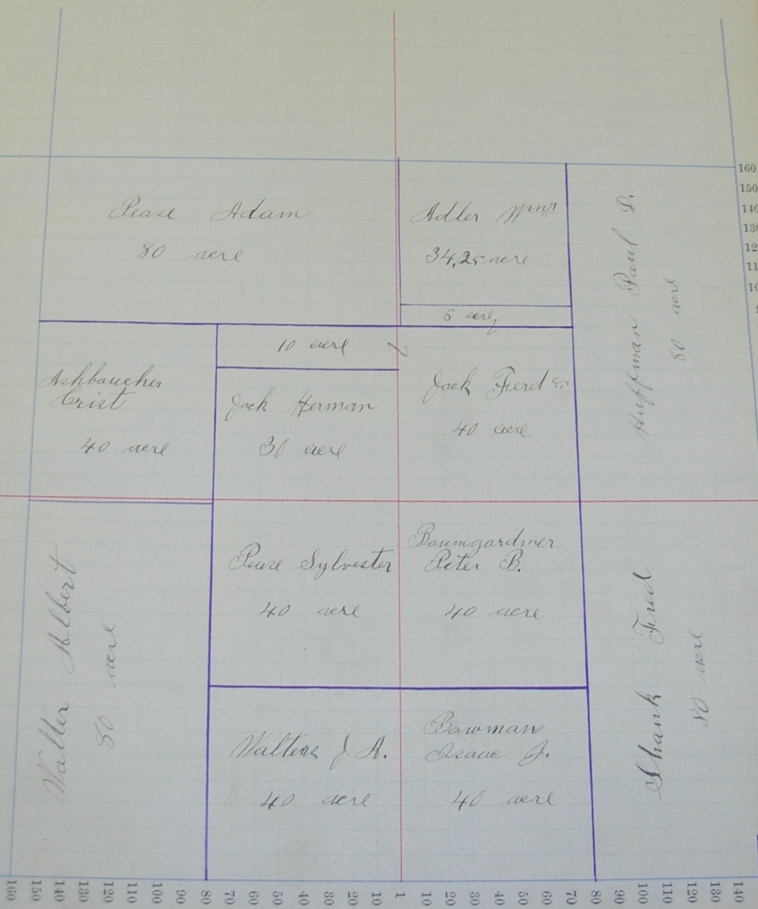 Pease Adam
80 acre
Adler Wm
34,25 acre
5 acre
Huffman Paul D.
80 acre
10 acre
Ashbaucher
Crist
40 acre
Jack Herman
30 acre
Jack Ferd Sr
40 acre
Pease Sylvester
40 acre
Baumgardner
Peter B.
40 acre
Walter Albert
80 acre
Shank Fred
80 acre
Walters J. A.
40 acre
Bowman
Isaac J.
40 acre
160
150
140
130
120
160 150 140 130 120 110 100 90 80 70 60 50 40 30 20 10 1 10 20 30 40 50 60 70 80 90 100 110 120 130 140